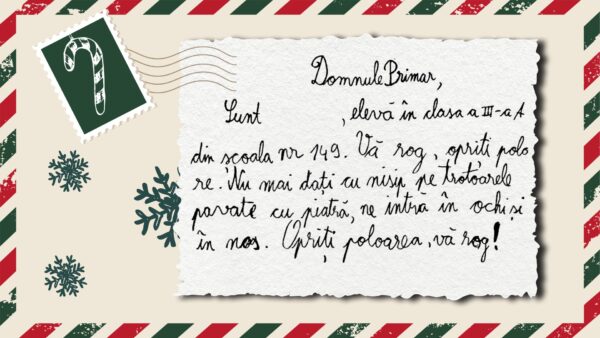 Domnule Brimar,
Sunt , elevă în clasa a III-a A
din școala nr 149. Vă rog, opriti polo
re. Nu mai dați cu nisip pe trotoarele
pavate cu piatră, ne intra în ochi și
în nas. Opriți poloarea, vă rog!